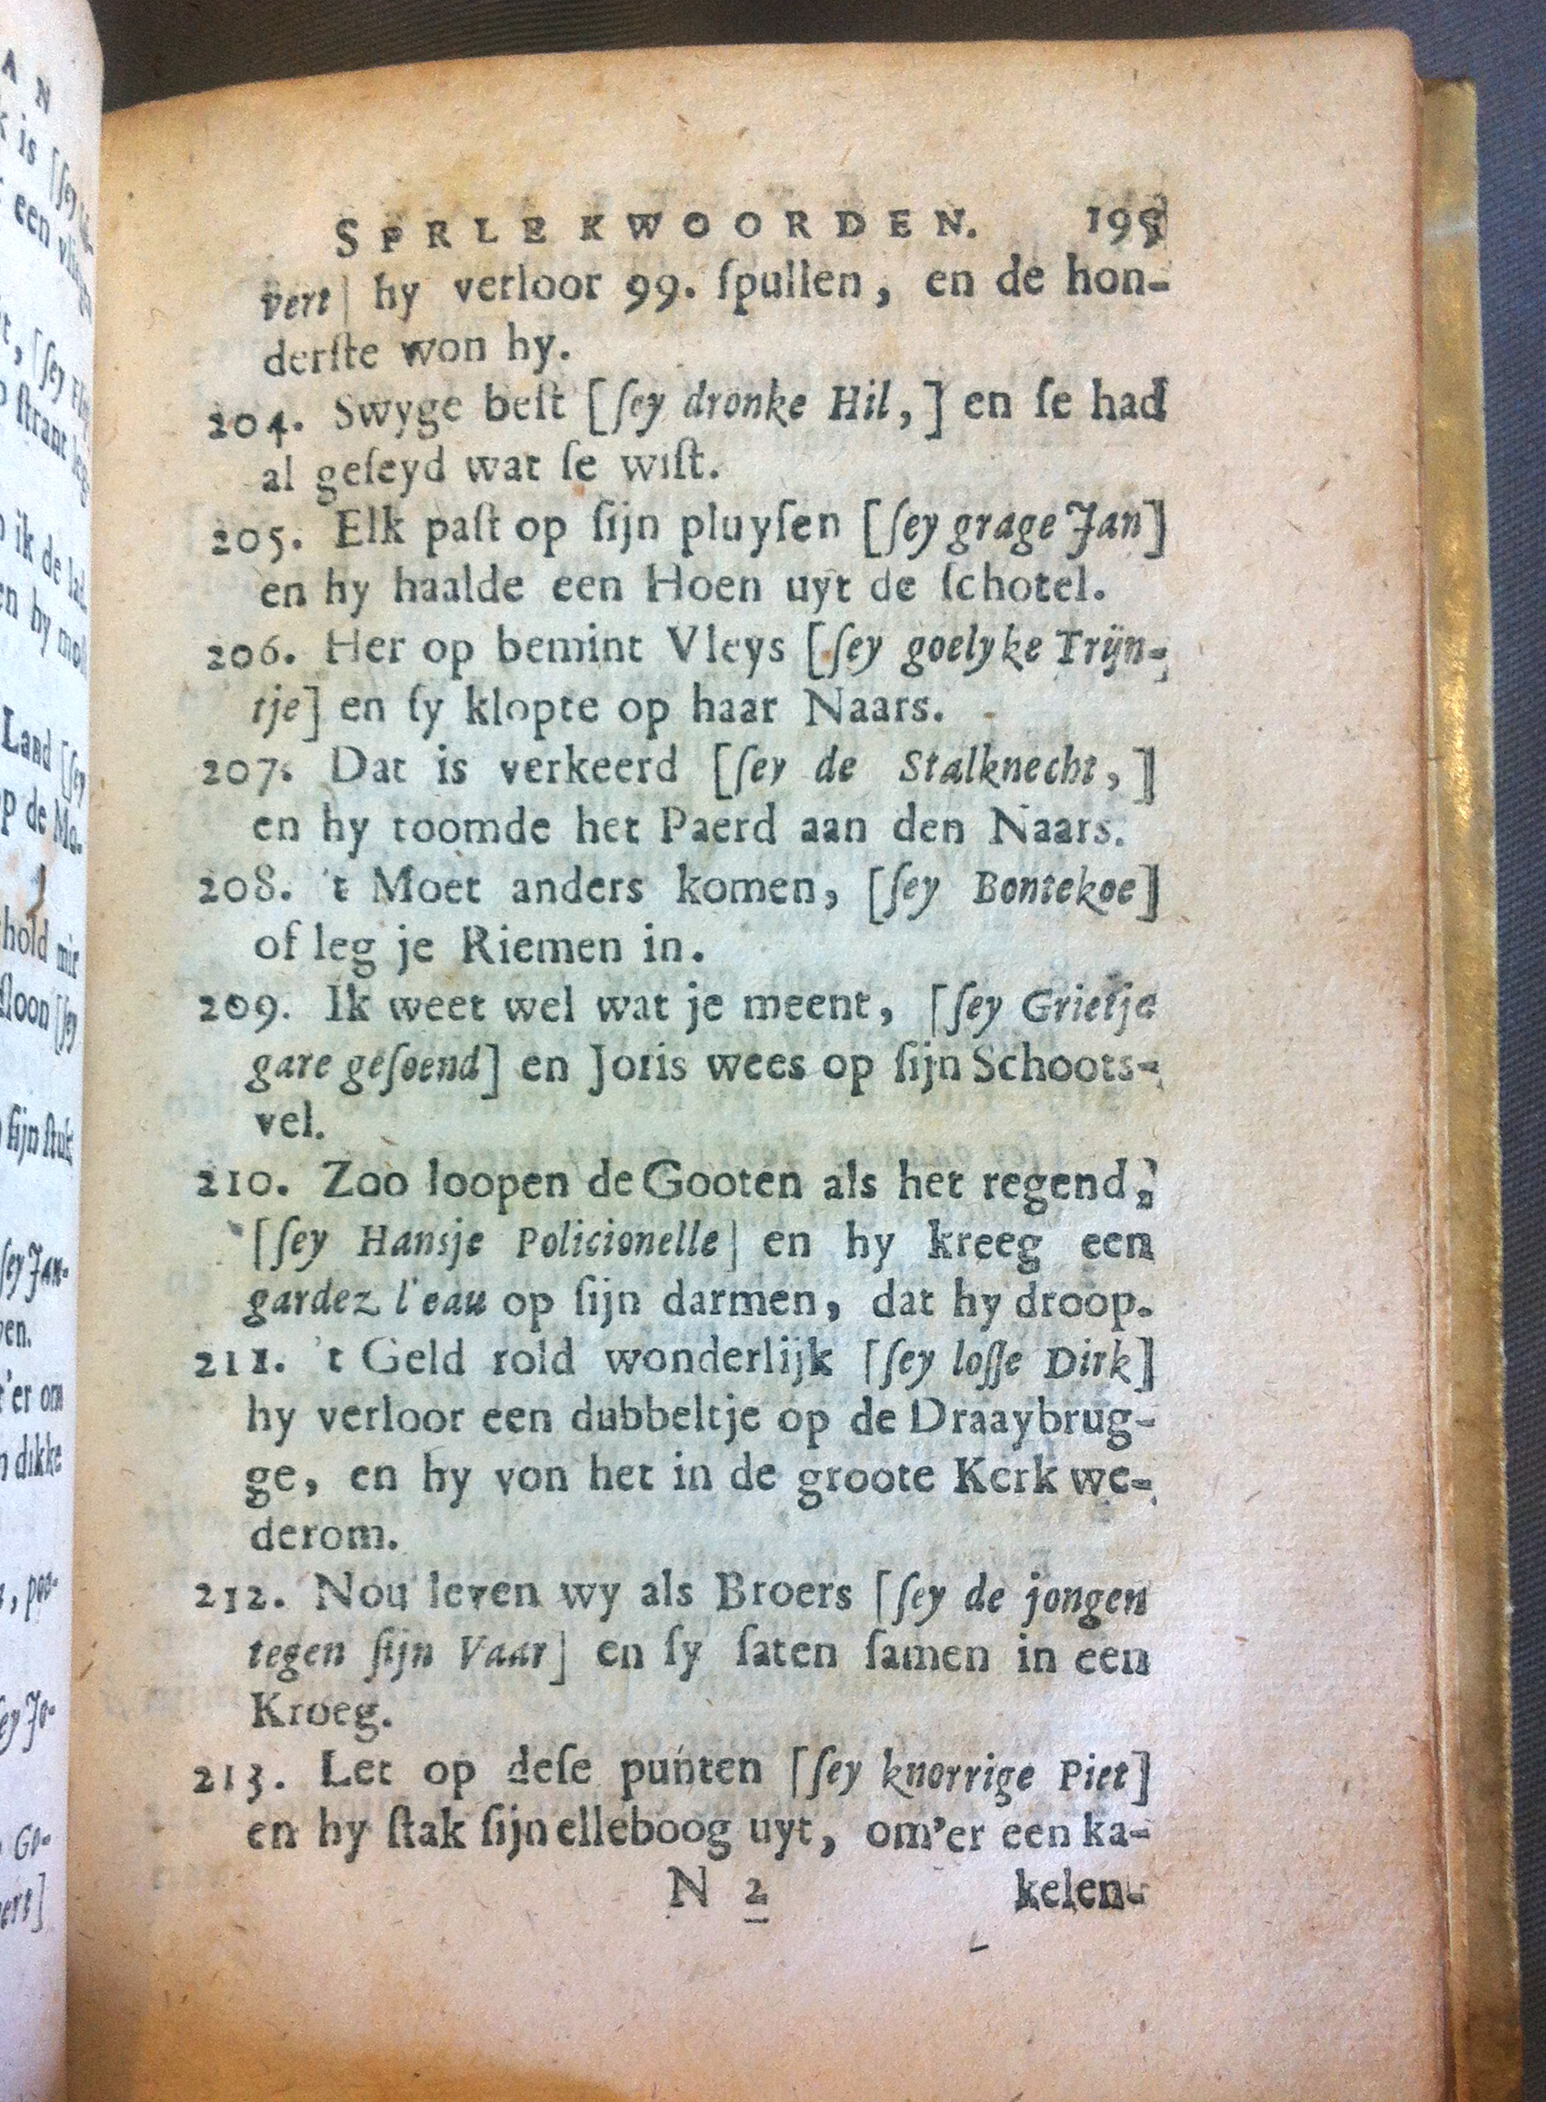 SPRLEKWOORDEN. 195
vert] hy verloor 99. ſpullen, en de hon-
derſte won hy.
204. Swyge beſt [ſey dronke Hil,] en ſe had
al geſeyd wat ſe wiſt.
205. Elk paſt op ſijn pluyſen [ſey grage Jan]
en hy haalde een Hoen uyt de ſchotel.
206. Her op bemint Vleys [ſey goelyke Trijn-
tje] en ſy klopte op haar Naars.
207. Dat is verkeerd [ſey de Stalknecht,]
en hy toomde het Paerd aan den Naars.
208. 't Moet anders komen, [ſey Bontekoe]
of leg je Riemen in.
209. Ik weet wel wat je meent, [ſey Grietje
gare geſoend] en Joris wees op ſijn Schoots-
vel.
210. Zoo loopen de Gooten als het regend,
[ſey Hansje Policionelle] en hy kreeg een
gardez l'eau op ſijn darmen, dat hy droop.
211. 't Geld rold wonderlijk [ſey loſſe Dirk]
hy verloor een dubbeltje op de Draaybrug-
ge, en hy von het in de groote Kerk we-
derom.
212. Nou leven wy als Broers [ſey de jongen
tegen ſijn Vaar] en ſy ſaten ſamen in een
Kroeg.
213. Let op deſe punten [ſey knorrige Piet]
en hy ſtak ſijn elleboog uyt, om'er een ka-
N 2 kelen-